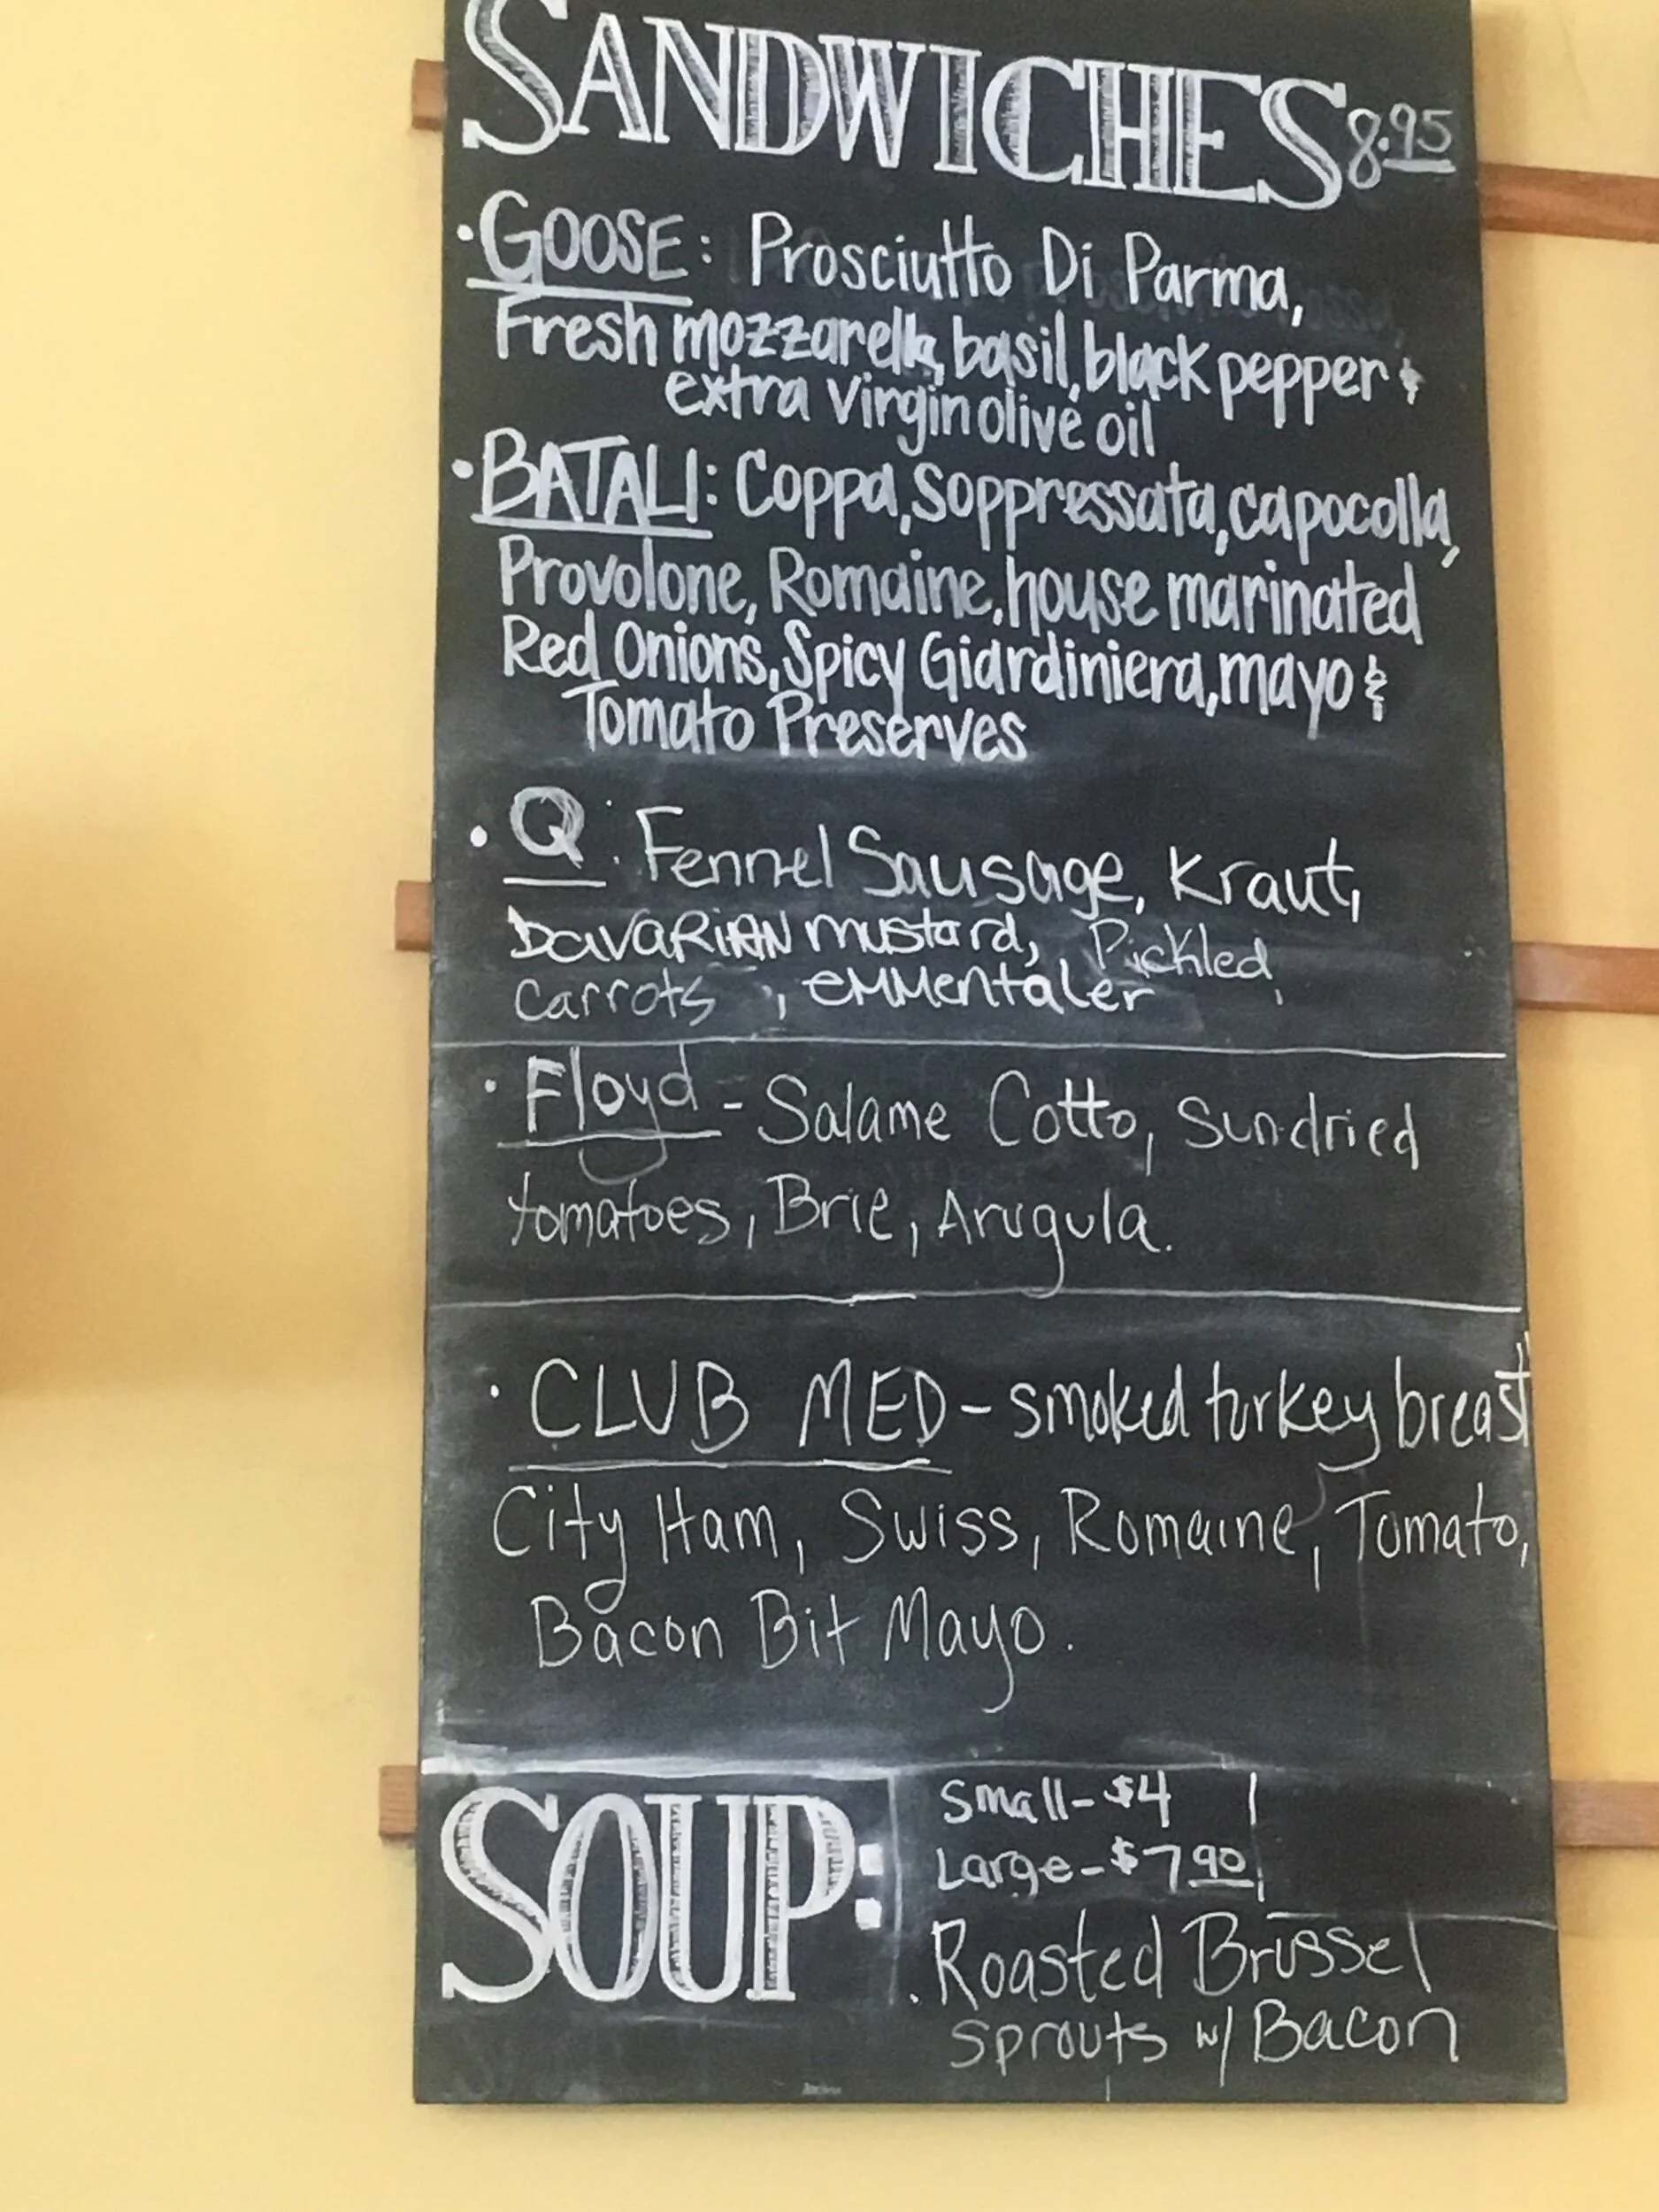 SANDWICHES 8.95
• GOOSE: Prosciutto Di Parma,
Fresh mozzarella, basil, black pepper &
extra virgin olive oil
• BATALI: Coppa, Soppressata, capocolla,
Provolone, Romaine, house marinated
Red Onions, Spicy Giardiniera, mayo &
Tomato Preserves
• Q: Fennel Sausage, Kraut,
bavaRiAN mustard, Pickled
carrots, eMMentaler
• Floyd - Salame Cotto, Sun-dried
tomatoes, Brie, Arugula.
• CLUB MED - smoked turkey breast
City Ham, Swiss, Romaine, Tomato,
Bacon Bit Mayo.
SOUP:
Small - $4
Large - $7.90
. Roasted Brussel
Sprouts w/ Bacon